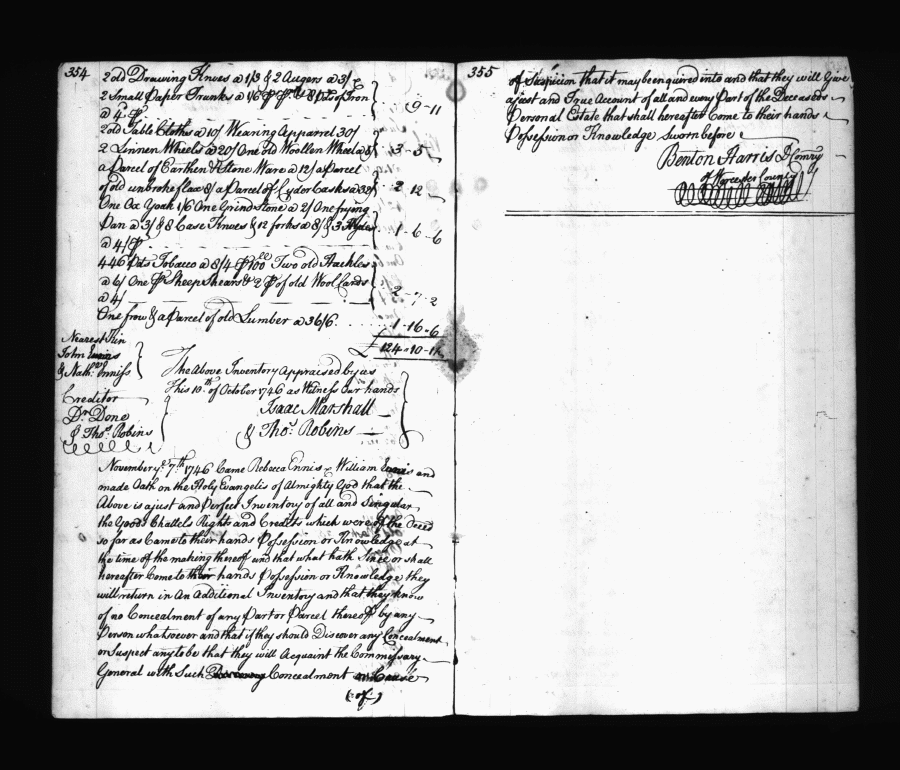 354
2 old Drawing Knives a 1/3 & 2 Augers a 3/
2 Small Paper Trunks a 1/6 of Iron
a 4 9-11
2 old Table Cloths a 10/ Wearing Apparel 30/
2 Linnen Wheels a 20/ One old Woollen Wheel a 8/ 3-5
a Parcel of Earthen & Stone Ware a 12/ a Parcel
of old unbroke flax 8/ a Parcel of Cyder Casks a 32/ 2-12
One Ox Yoak 1/6 One Grindstone a 2/ One frying
Pan a 3/ & 8 Case Knives & 12 forks a 8/ & 3 Hydes 1-6-6
a 4/ P
446 Pds Tobacco a 8/4 P 100 Two old Hackles
a 6/ One P Sheep Shears & 2 P of old Wool Cards 2-7-2
a 4/
One frow & a Parcel of old Lumber a 36/6 1-16-6
£ 124-10-11
Nearest Kin
John Ennis
& Nath: Enniss
Creditor
Dr. Done
& Thos. Robins
The Above Inventory Appraised by us
This 10th of October 1746 as Witness Our hands
Isaac Marshall
& Thos. Robins
November ye 7th 1746 Came Rebecca Ennis & William Ennis and
made Oath on the Holy Evangelis of Almighty God that the
Above is a just and Perfect Inventory of all and Singular
the Goods Chattels Rights and Credits which were of the Deced
so far as Came to their hands Possession or Knowledge at
the time of the making thereof and that what hath Since or shall
hereafter Come to their hands Possession or Knowledge they
will return in An Additional Inventory and that they know
of no Concealment of any Part or Parcel thereof by any
Person whatsoever and that if they should Discover any Concealment
or Suspect any to be that they will Acquaint the Commissary
General with Such Concealment or Cause
(of)
355
of Suspicion that it may be enquired into and that they will Give
a just and True Account of all and every Part of the Deceaseds
Personal Estate that shall hereafter Come to their hands
Possession or Knowledge Sworn before
Benton Harris D Comry
of Worcester County